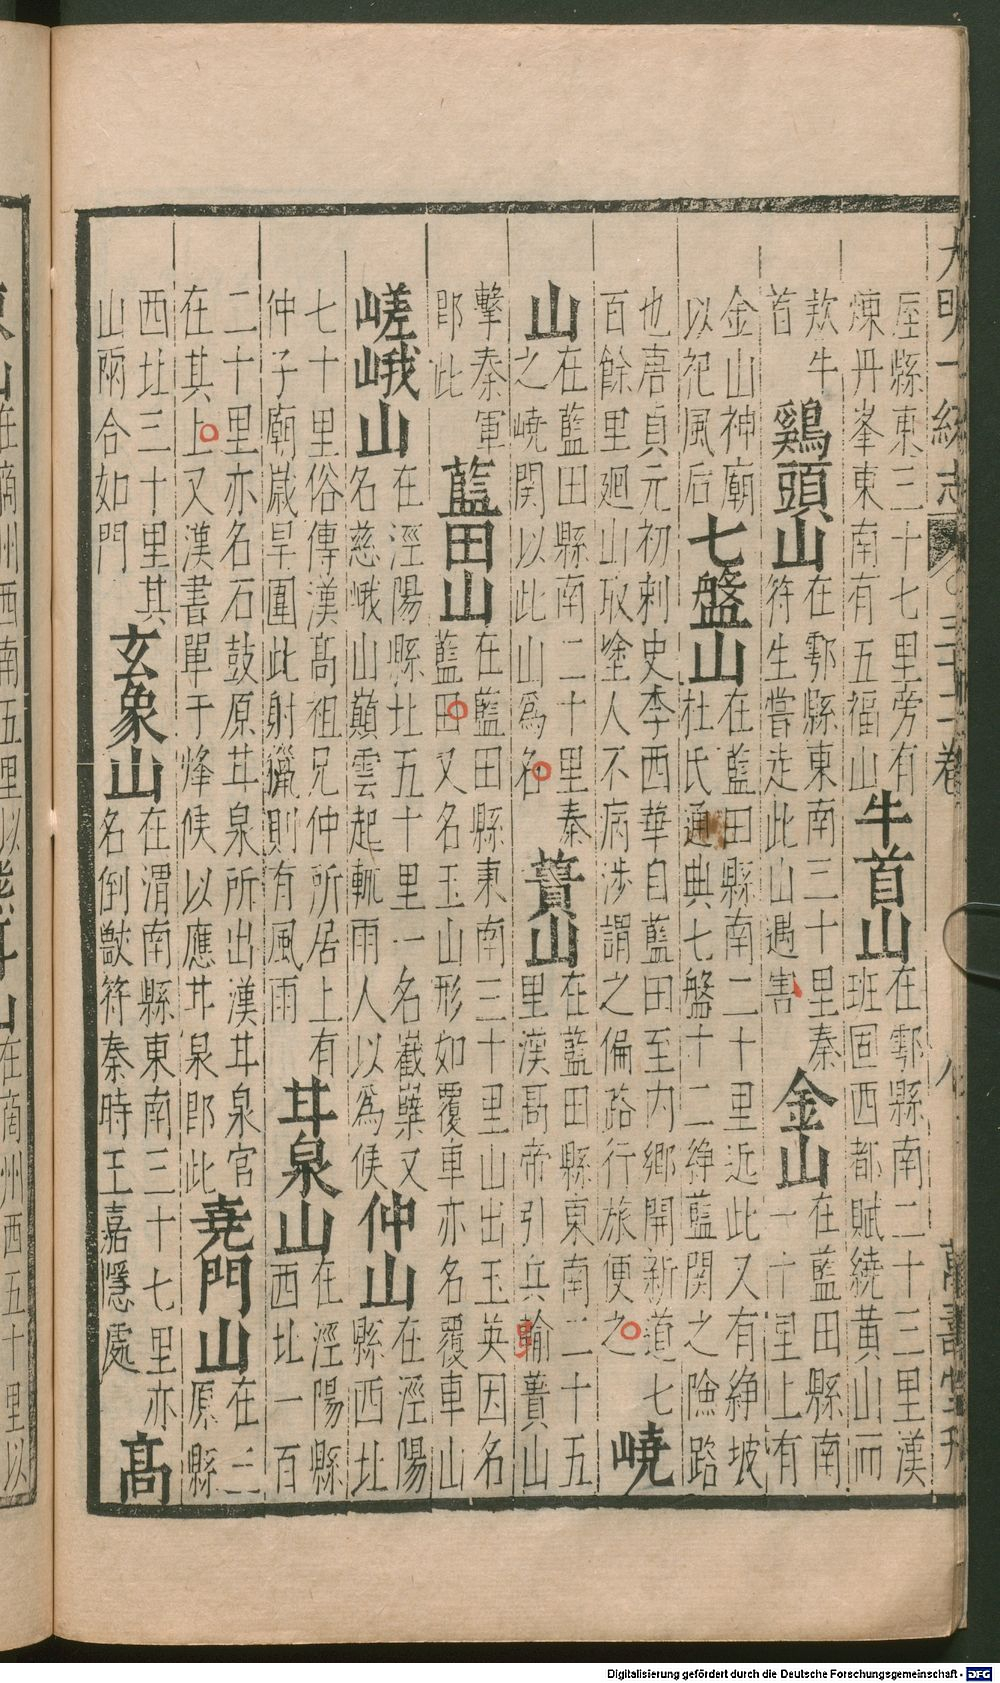 大明一統志 三十二卷 八 萬壽堂刊
厔縣東三十七里旁有
煉丹峯東南有五福山
牛首山
在鄠縣南二十三里漢
班固西都賦繞黃山而
欵牛
首
鷄頭山
在鄠縣東南三十里秦
符生嘗走此山遇害
金山
在藍田縣南
一十里上有
金山神廟
以祀風后
七盤山
在藍田縣南二十里近此又有綍坡
杜氏通典七盤十二綍藍関之險路
也唐貞元初刺史李西華自藍田至内鄉開新道七
百餘里廻山取塗人不病涉謂之偏路行旅便之
嶢
山
在藍田縣南二十里秦
之嶢関以此山爲名
蕢山
在藍田縣東南二十五
里漢髙帝引兵踰蕢山
擊秦軍
卽此
藍田山
在藍田縣東南三十里山出玉英因名
藍田又名玉山形如覆車亦名覆車山
嵯峨山
在涇陽縣北五十里一名巀嶭又
名慈峨山巔雲起輒雨人以爲候
仲山
在涇陽
縣西北
七十里俗傳漢髙祖兄仲所居上有
仲子廟歲旱圍此射獵則有風雨
甘泉山
在涇陽縣
西北一百
二十里亦名石鼓原甘泉所出漢甘泉官
在其上又漢書單于烽候以應甘泉卽此
堯門山
在三
原縣
西北三十里其
山兩合如門
玄象山
在渭南縣東南三十七里亦
名倒獸符秦時王嘉隱處
髙
在商州西南五里以
在商州西五十里以
Digitalisierung gefördert durch die Deutsche Forschungsgemeinschaft - DFG